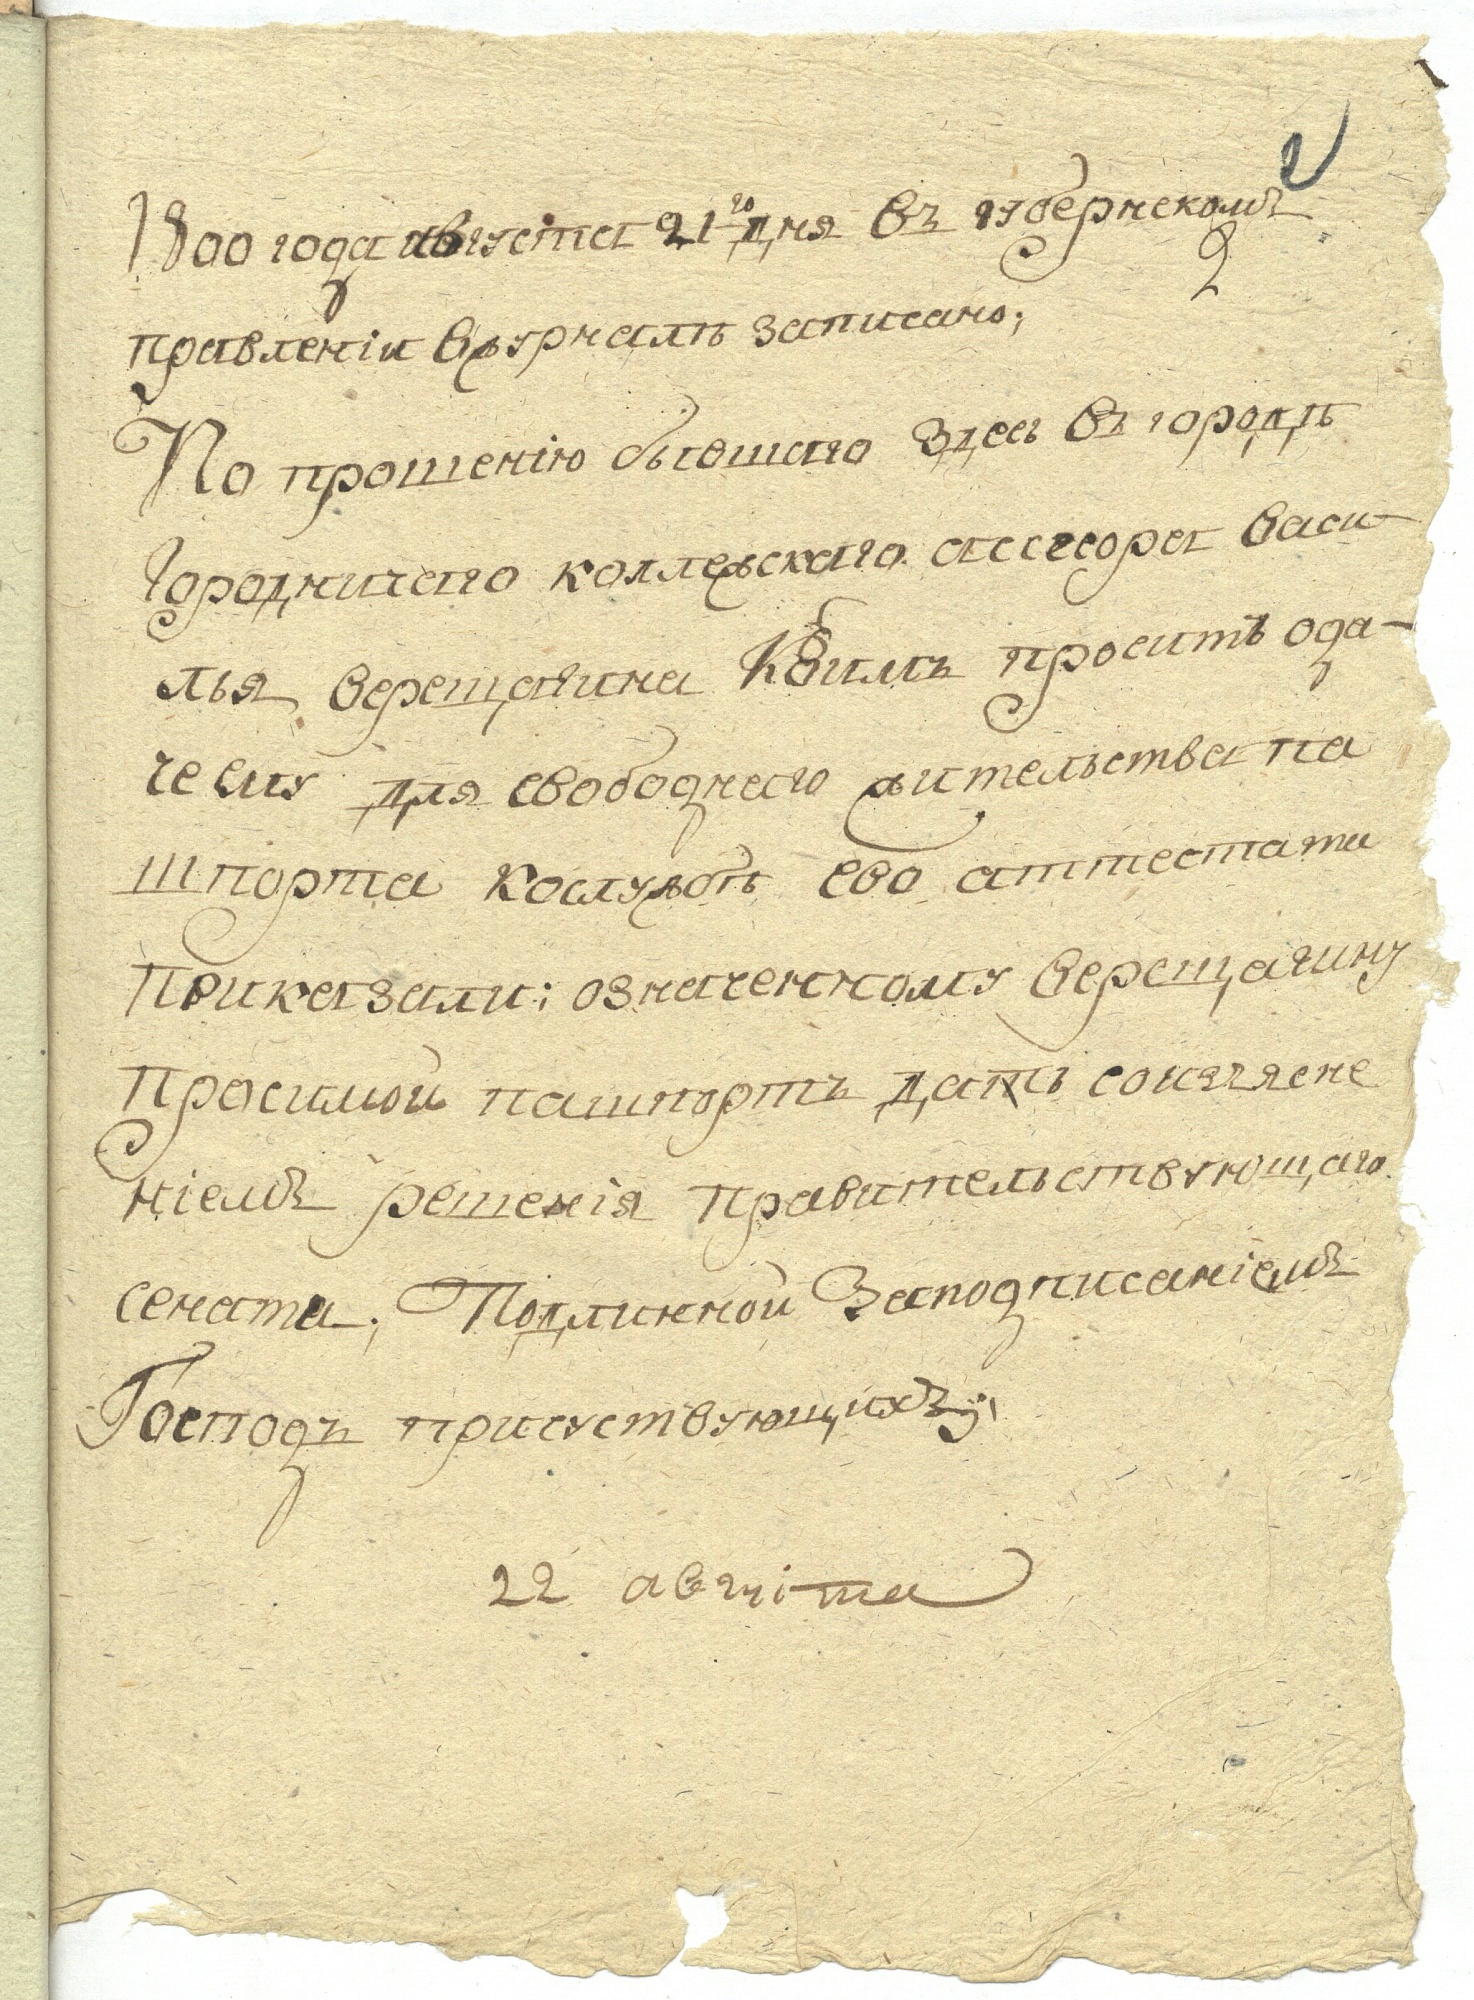 2
1800 года августа 21го дня въ губернскомъ
2
правленіи вжурналѣ записано;
По прошенію бывшаго здесь въ городѣ
городничаго коллежскаго ассесора васи-
лья верещагина коимъ проситъ ода-
че ему для свободнаго жительства па
шпорта кослужбѣ ево аттестата
Приказали; означенному верещагину
просимой пашпортъ дать
ніемъ решенія правительствующаго
сената, Подлинной Заподписаніемъ
Господъ присуствующихъ;
22 августа